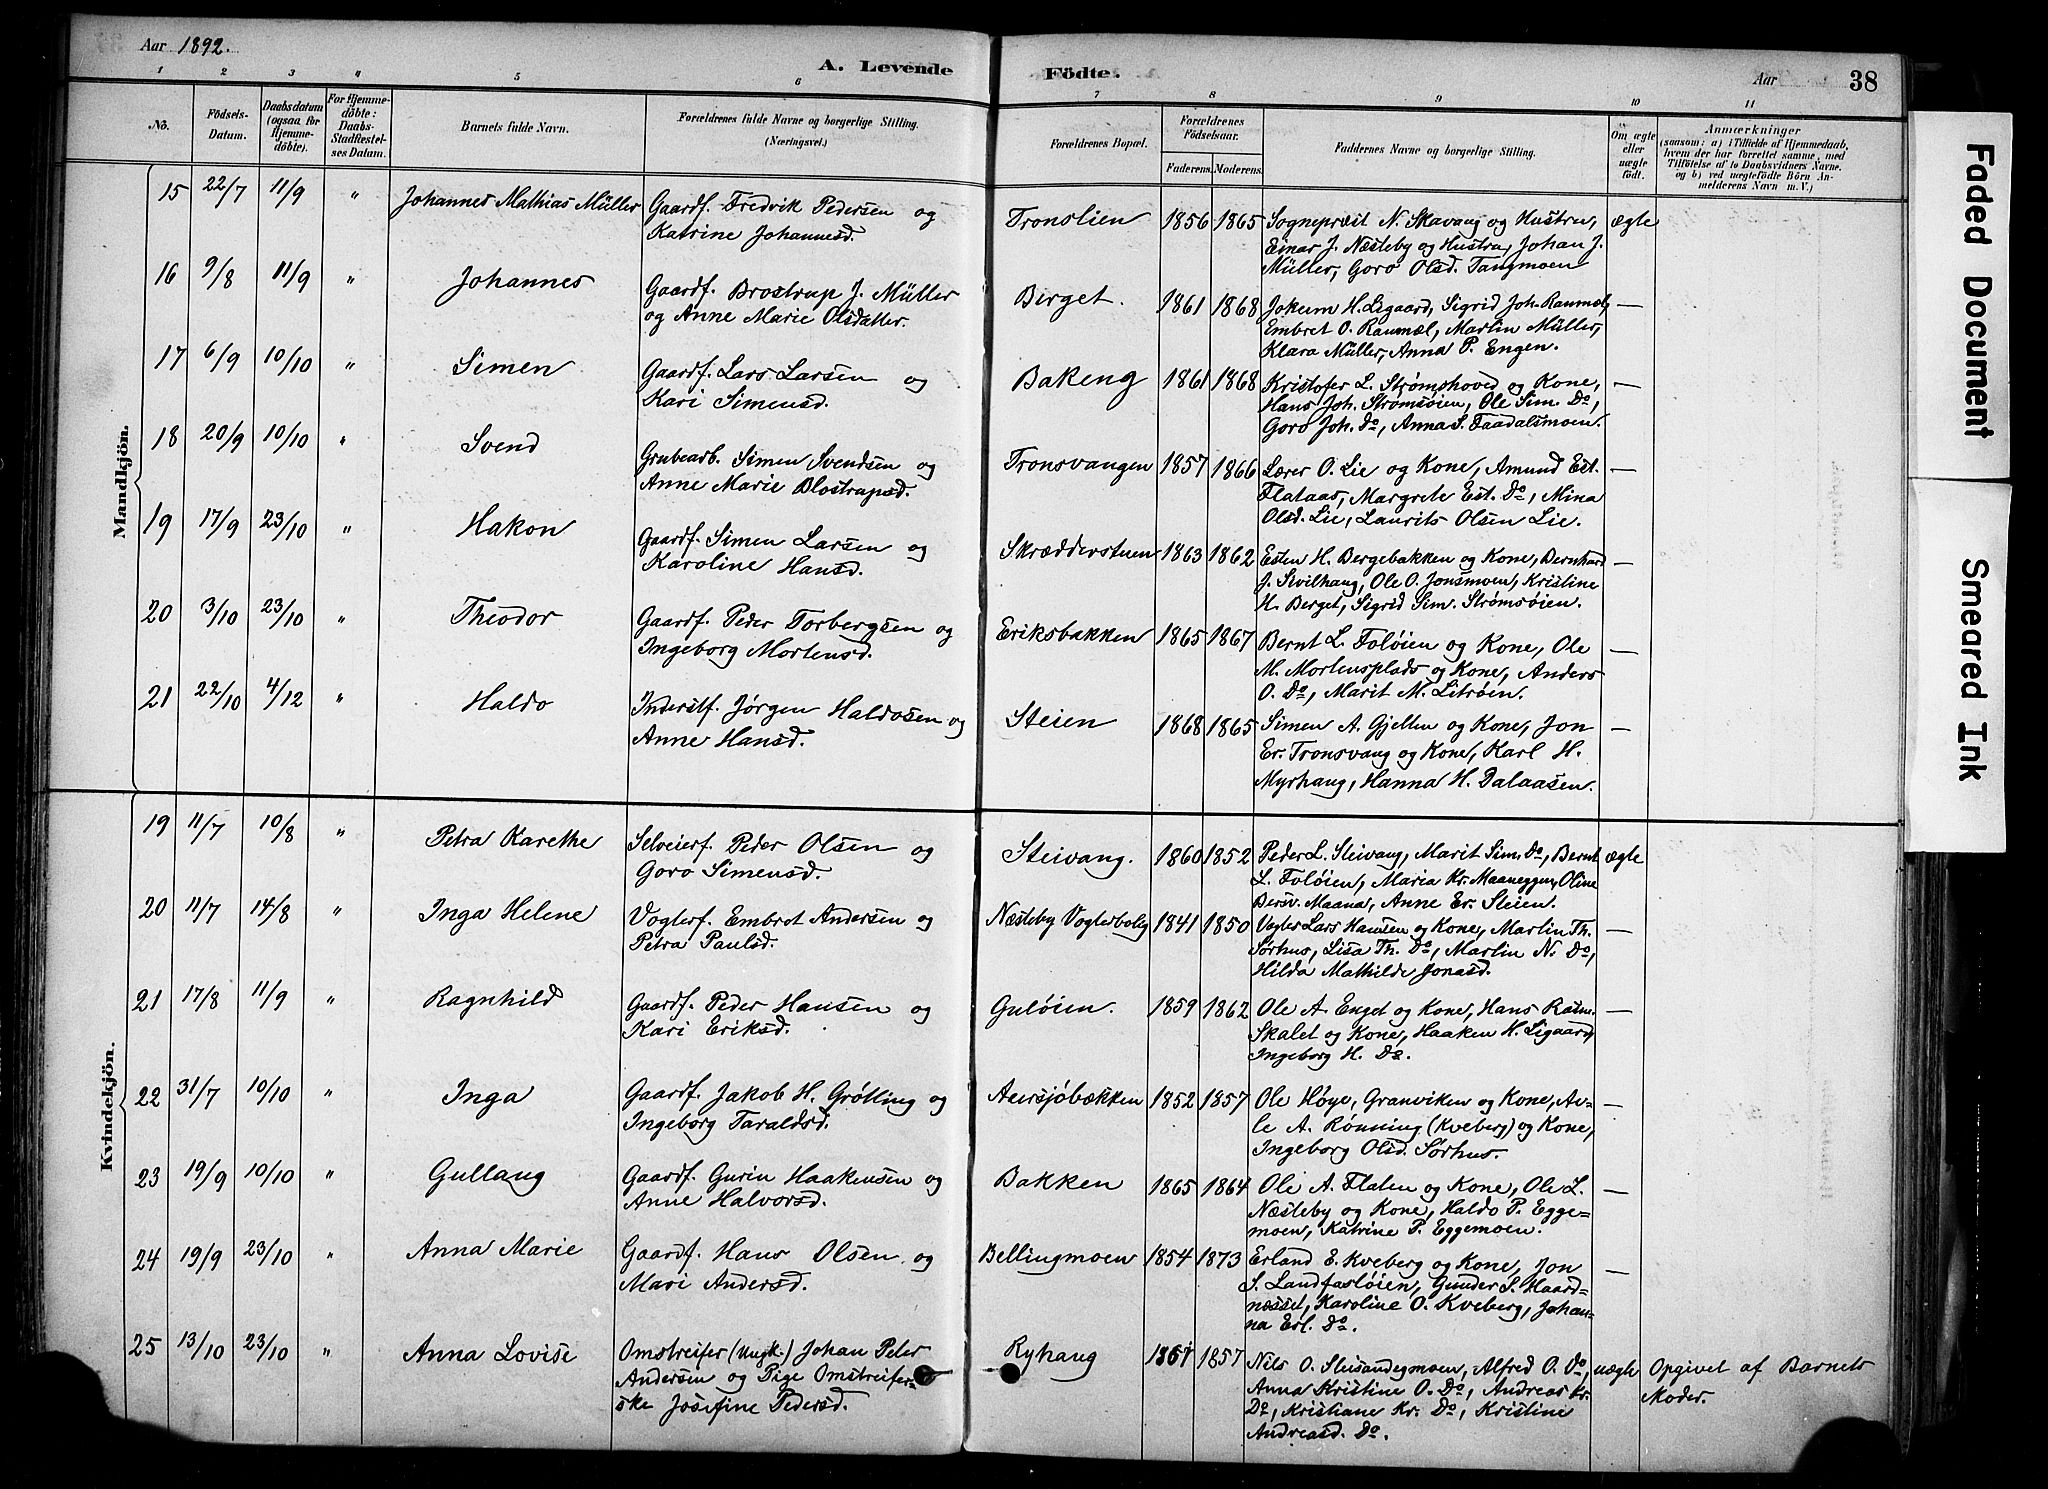 Aar 1892.
A. Levende Födte.
Aar
38
1 2 3 " 5 6 7 8 9 10 11
No.
Födsels-
Datum.
Daabsdatum
(ogsaa for
Hjemme-
döbte).
For Hjemme-
döbte:
Daabs-
Stadfæstel-
ses Datum.
Barnets fulde Navn.
Forældrenes fulde Navne og borgerlige Stilling.
(Næringsvei.)
Forældrenes Bopæl.
Forældrenes
Födselsaar.
Faderens. Moderens.
Faddernes Navne og borgerlige Stilling.
Om ægte
eller
uægte
födt.
Anmærkninger
(saasom: a) i Tilfælde af Hjemmedaab,
hvem der har forrettet samme, med
Tilföielse af to Daabsvidners Navne.
og b) ved uægtefödte Börn An-
melderens Navn m. V.)
Mandkjön.
15 22/7 11/9 " Johannes Mathias Müller Gaardf. Fredrik Pedersen og
Katrine Johannesd.
Tronslien 1856 1865 Sognepræst N. Skavang og Hustru, ægte
Einar J. Næsteby og Hustru, Johan J.
Müller, Goro Olsd. Tangmoen
16 9/8 11/9 " Johannes Gaardf. Brostrup J. Müller
og Anne Marie Olsdatter.
Berget. 1861 1868 Jokum H. Ligaard, Sigrid Joh. Raumæl, —
Embret O. Raumæl, Martin Müller,
Klara Müller, Anna P. Engen.
17 6/9 10/10 " Simen Gaardf. Lars Larsen og
Kari Simensd.
Bakeng 1861 1868 Kristofer L. Strømshoved og Kone, —
Hans Joh. Strømsøien, Ole Sim. Do,
Goro Joh. Do, Anna S. Faadalsmoen.
18 20/9 10/10 " Svend Grubearb. Simen Svendsen og
Anne Marie Blostrupsd.
Tronsvangen 1857 1866 Lærer O. Lie og Kone, Amund Est. —
Flataas, Margrete Est. Do, Mina
Olsd. Lie, Laurits Olsen Lie.
19 17/9 23/10 " Hakon Gaardf. Simen Larsen og
Karoline Hansd.
Skrædderstuen 1863 1862 Esten H. Bergebakken og Kone, Bernhard —
J. Sivilhaug, Ole O. Jonsmoen, Kristine
H. Berget, Sigrid Sim. Strømsøien.
20 3/10 23/10 " Theodor Gaardf. Peder Torbergsen og
Ingeborg Mortensd.
Eriksbakken 1865 1867 Bernt L. Foløien og Kone, Ole —
M. Mortensplads og Kone, Anders
O. Do, Marit M. Litrøen.
21 22/10 4/12 " Haldo Inderstf. Jørgen Haldosen og
Anne Hansd.
Steien 1868 1865 Simen A. Gjelten og Kone, Jon —
Er. Tronsvang og Kone, Karl H.
Myrhaug, Hanna H. Dalaasen.
Kvindekjön.
19 11/7 10/8 " Petra Karethe Selveierf. Peder Olsen og
Goro Simensd.
Steivang. 1860 1852 Peder L. Steivang, Marit Sim. Do, Bernt ægte
L. Foløien, Maria Kr. Maaneggen, Oline
Bersv. Maana, Anne Er. Steien.
20 11/7 14/8 " Inga Helene Vogterf. Embret Andersen og
Petra Paulsd.
Næsteby Vogterbolig 1841 1850 Vogter Lars Hansen og Kone, Martin Th. —
Sørhus, Lisa Th. Do, Martin N. Do,
Hilda Mathilde Jonasd.
21 17/8 11/9 " Ragnhild Gaardf. Peder Hansen og
Kari Eriksd.
Guløien. 1859 1862 Ole A. Enget og Kone, Hans Rasm. —
Skalet og Kone, Haaken H. Ligaard,
Ingeborg H. Do.
22 31/7 10/10 " Inga Gaardf. Jakob H. Grøtting og
Ingeborg Taraldsd.
Aursjøbækken 1852 1857 Ole Høye, Granviken og Kone, At- —
le A. Rønning (Kveberg) og Kone,
Ingeborg Olsd. Sørhus.
23 19/9 10/10 " Gullaug Gaardf. Gurin Haakensen og
Anne Halvorsd.
Bakken 1865 1864 Ole A. Flaten og Kone, Ole L. —
Næsteby og Kone, Haldo P. Egge-
moen, Katrine P. Eggemoen.
24 19/9 23/10 " Anna Marie Gaardf. Hans Olsen og
Mari Andersd.
Bellingmoen 1854 1873 Erland E. Kveberg og Kone, Jon —
S. Landfastøien, Gunder S. Haard-
næsset, Karoline O. Kveberg, Johan-
na Erl. Do.
25 13/10 23/10 " Anna Lovise Omstreifer (Ungk.) Johan Peter
Andersen og Pige Omstreifer-
ske Josefine Pedersd.
Ryhaug 1857 Nils O. Steisandegmoen, Alfred O. Do, uægte Opgivet af Barnets
Anna Kristine O. Do, Andreas Kr. Moder.
Do, Kristiane Kr. Do, Kristine
Andreasd. Do.
Faded Document
Smeared Ink